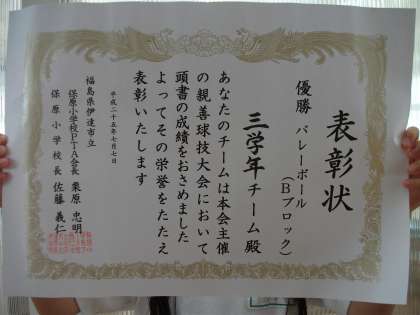 表彰状
優勝 バレーボール
(Bブロック)
三学年チーム殿
あなたのチームは本会主催
の親善球技大会において
頭書の成績をおさめました
よってその栄誉をたたえ
表彰いたします
平成二十五年七月七日
福島県伊達市立
保原小学校PTA会長 栗原 忠明
保原小学校長 佐藤 義仁